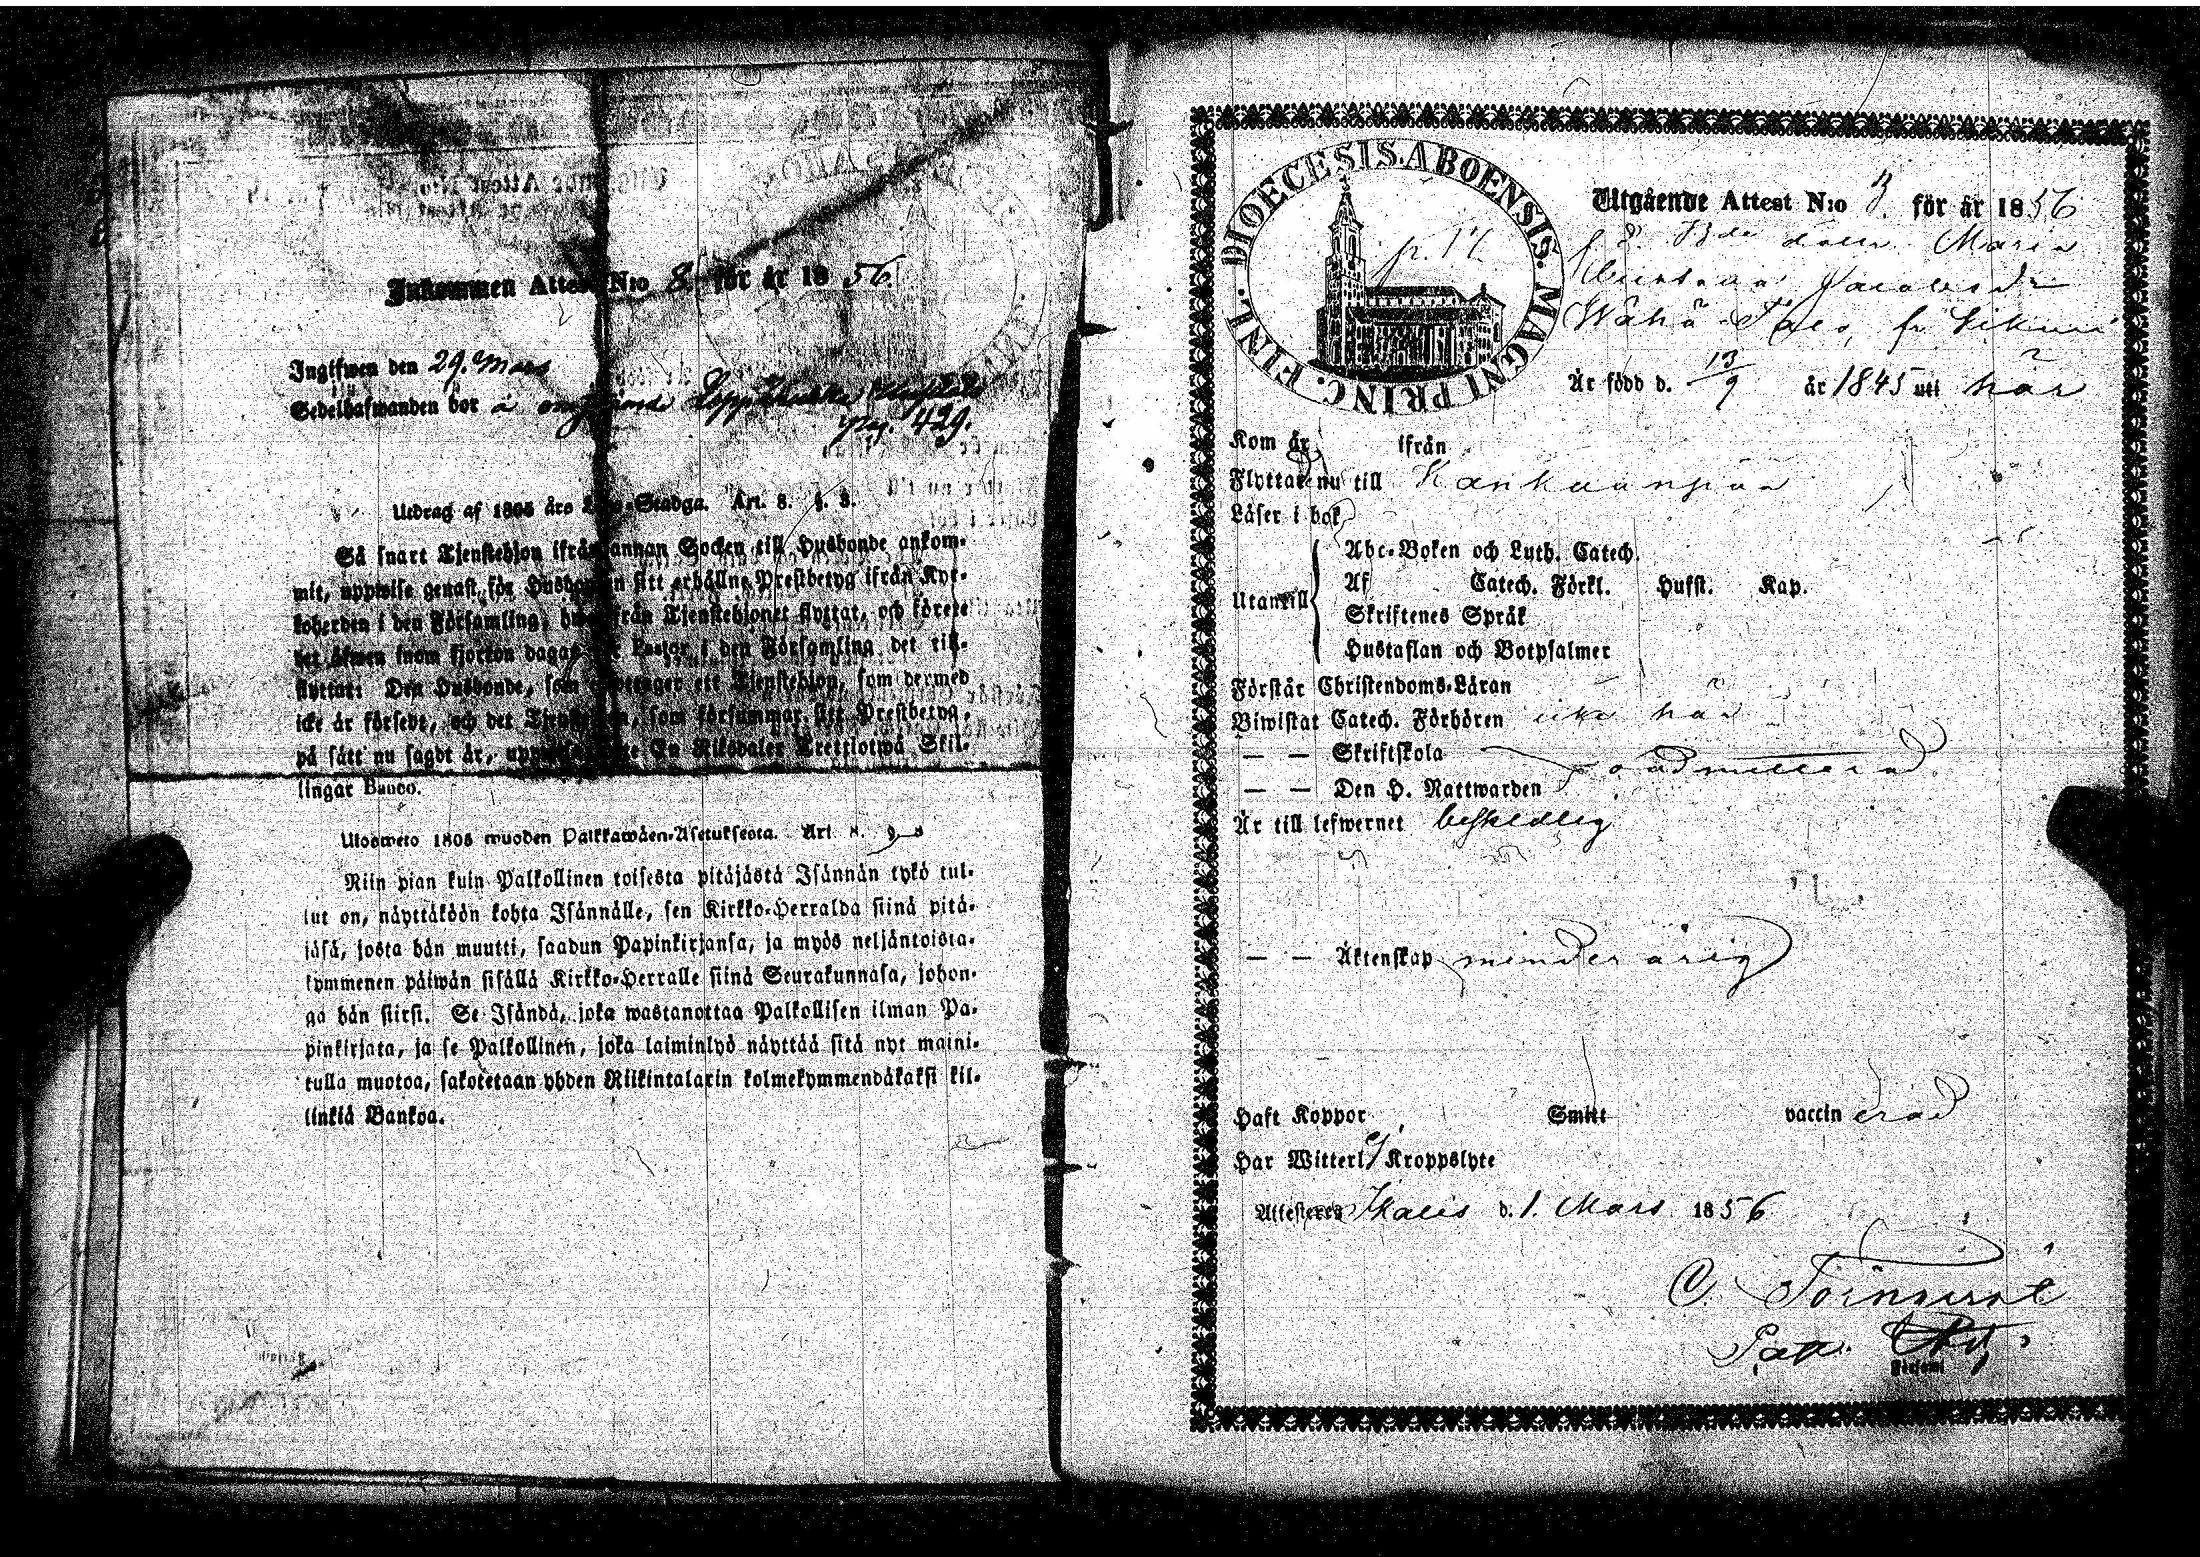 Inkommen Attest N:o 8. för år 1856.
Ingifwen den 29. Mars
Sedelhafwanden bor å
pag. 429.
Utdrag af 1805 års Lego-Stadga. Art. 8. §. 3.
Så snart Tjenstehjon ifrån annan Socken till Husbonde ankom-
mit, uppwise genast för Husbonden sitt erhållne Prestbetyg ifrån Kyr-
koherden i den Församling, hwarifrån Tjenstehjonet flyttat, och förete
det äfwen inom fjorton dagar för Pastor i den Församling det till-
flyttat: Den Husbonde, som emottager ett Tjenstehjon, som dermed
icke är försedt, och det Tjenstehjon, som försummar sitt Prestbetyg,
på sätt nu sagdt är, uppwisa, böte En Riksdaler Trettiotwå Skil-
lingar Banco.
Ulosweto 1805 wuoden Palkkawäen-Asetuksesta. Art. 8. § 3
Niin pian kuin Palkollinen toisesta pitäjästä Isännän tykö tul-
lut on, näyttäköön kohta Isännälle, sen Kirkko-Herralda siinä pitä-
jäsä, josta hän muutti, saadun Papinkirjansa, ja myös neljäntoista-
kymmenen päiwän sisällä Kirkko-Herralle siinä Seurakunnasa, johon-
ga hän siirsi. Se Isändä, joka wastanottaa Palkollisen ilman Pa-
pinkirjata, ja se Palkollinen, joka laiminlyö näyttää sitä nyt maini-
tulla muotoa, sakotetaan yhden Riikintalarin kolmekymmendäkaksi kil-
linkiä Bankoa.
DIOECESIS.ABOENSIS.MAGNI PRINC. FINL.
Utgående Attest N:o 3. för år 1856
Maria
Jacobsdr
Wähä
Är född d. 13/9 år 1845 uti här
Kom år ifrån
Flyttar nu till Kankaanpää
Läser i bok
Utantill
Abc-Boken och Luth. Catech.
Af Catech. Förkl. Hufst. Kap.
Skriftenes Språk
Hustaflan och Botpsalmer
Förstår Christendoms-Läran
Biwistat Catech. Förhören icke här
— — Skriftskola oadmitterad
— — Den H. Nattwarden
Är till lefwernet beskedlig
— — Äktenskap minderårig
Haft Koppor Smitt vaccinerad
Har Witterl. Kroppslyte
Attesteres Ikalis d. 1. Mars 1856